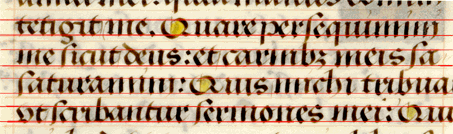 tetigit me. Quare persequimini
me sicut deus: et carnibz meis sa
turamini: Quis michi tribua
ut scribantur sermones mei: Qui